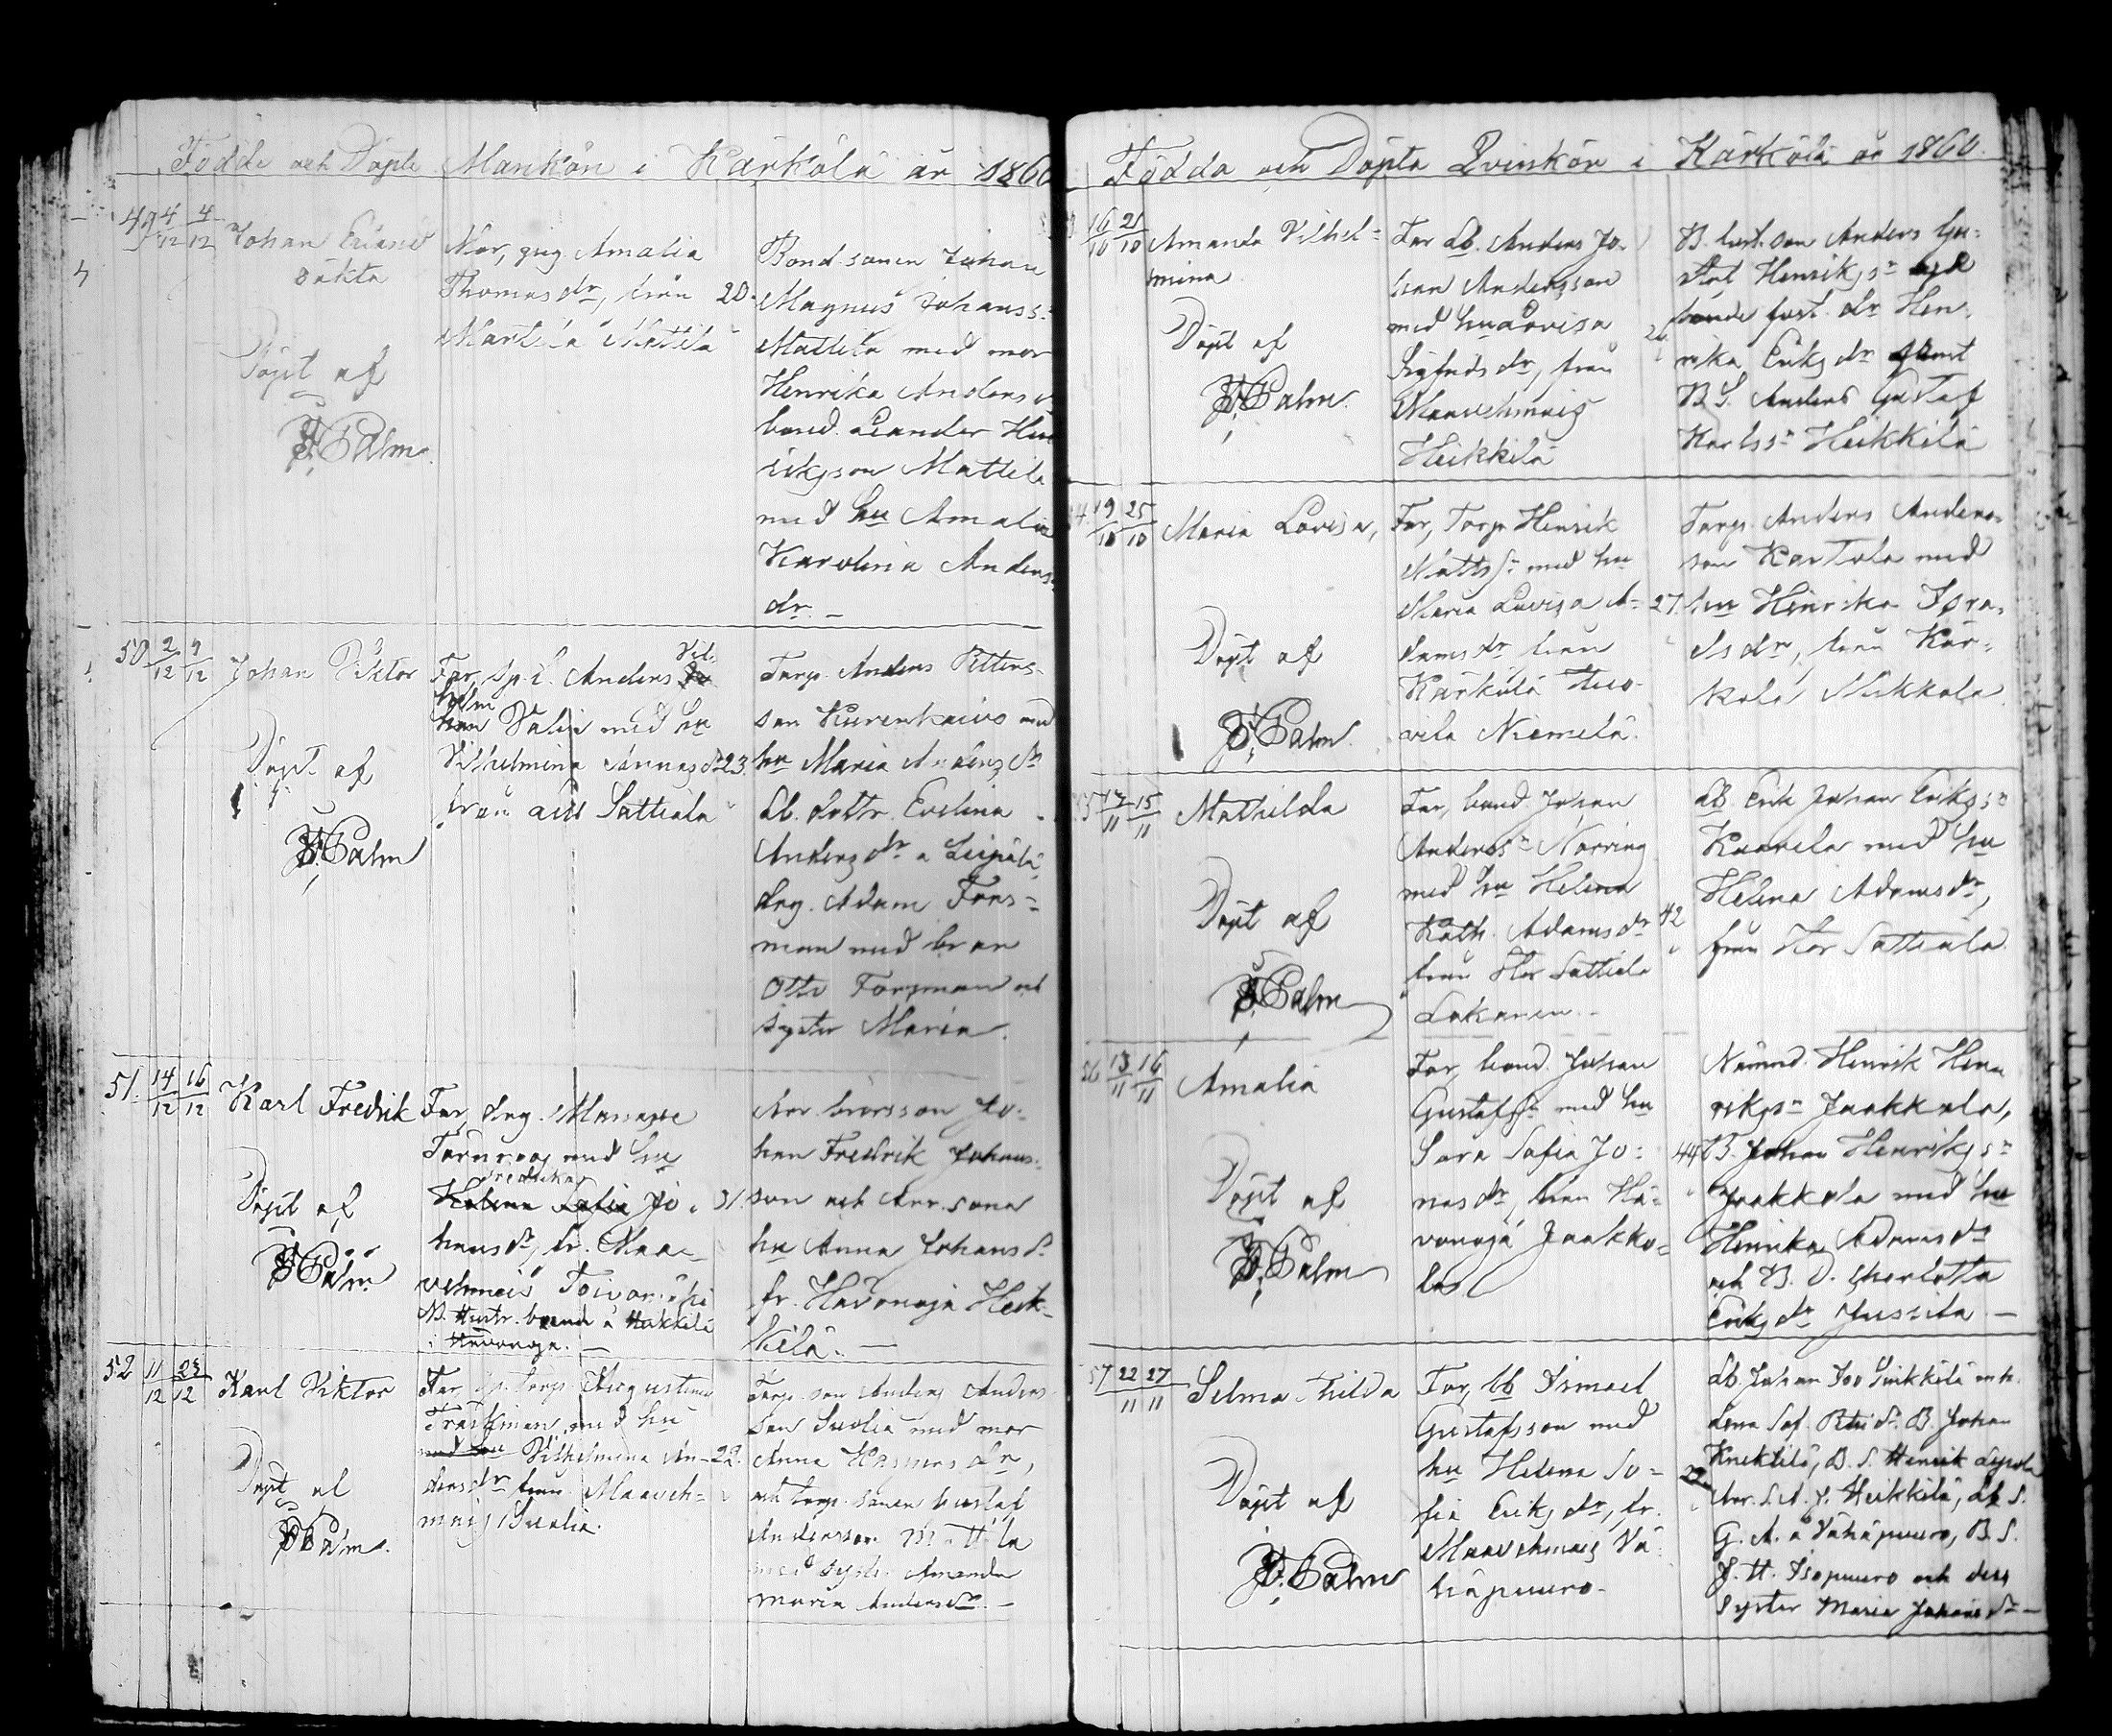 Födde och Döpte Mankön i Kärkölä år 1860
49 4/12 4/12
Johan
oäkta
Döpt af
Palm
Mor, pig Amalia
Thomasdr, från 20.
Marttila Mattila
Bond. sonen Johan
Magnus Johanss:
Mattila med mor
Henrika Anders
bond. Leander Hen
rikson Mattila
med hu Amalia
Karolina Anders
dr. —
50 2/12 9/12
Johan Viktor
Döpt af
Palm
Far, Sp. L. Anders Vil-
helm
Valin med hu
Vilhelmina Annasdr 23.
från Sattiala
Torp. Anders Petters-
son Kurenkaivo med
hu Maria Andersdr
Lb. dottr. Evelina
Andersdr a Leipälä
drg. Adam Fors-
man med bror
Otto Forsman och
syster Maria.
51. 14/12 16/12
Karl Fredrik
Döpt af
Palm
Far, drg. Manasse
Törnroos med hu
Fredrika
Helena Sofia Jo- 31.
hansdr, fr. Maa-
vehmais Toivomäki
i Hävonoja. —
Arr. brorsson Jo-
han Fredrik Johans-
son och Arr. sona
hu Anna Johansdr
fr. Hävonoja Heik-
kilä. —
52 11/12 23/12
Karl Viktor
Döpt af
Palm
Far, Sp. torp. Augustinus
Träskman, med hu
med hu Vilhelmina An- 22.
dersdr från Maaveh-
mais Suolia.
Torp. son Anders Anders
son Suolia med mor
Anna Kasmirs dr,
och torp. sonen Gustaf
Andersson Mattila
med syst. Amanda
Maria Andersdr. —
Födda och Döpta Qvinkön i Kärkölä år 1860.
16/10 21/10
Amanda Vilhel-
mina.
Döpt af
Palm.
Far Lb. Anders Jo-
han Andersson
med hu Lovisa
Sigfridsdr, från
Maavehmais
Heikkilä
B. hust. son Anders Gu-
staf Henrikssn och
bonde fost. dr Hen-
rika Eriksdr samt
B. S. Anders Gustaf
Karlssn Heikkilä
19/10 25/10
Maria Lovisa,
Döpt af
Palm.
Far, Torp. Henrik
Mattssn med hu
Maria Lovisa A- 27.
damsdr från
Kärkölä Huo-
vila Niemelä.
Torp. Anders Anders-
son Kartola med
hu Henrika Isra-
elsdr, från Kär-
kölä Mikkola.
12/11 15/11
Mathilda
Döpt af
Palm
Far, bond. Johan
Anderssn Norring
med hu Helena
Kath. Adamsdr 42
från Hor Sattiala
Lakanen. —
Lb. Erik Johan Erikssn
Kaavela med hu
Helena Adamsdr,
från Hor Sattiala.
56 13/11 16/11
Amalia
Döpt af
Palm
Far, bond. Johan
Gustafssn med hu
Sara Sofia Jo- 44
nasdr, från Hä-
vonoja Jaakko-
la
Nämnd. Henrik Hen
rikssn Jaakkola,
B. Johan Henrikssn
Jaakkola med hu
Henrika Adamsdr
och B. D. Charlotta
Eriksdr Jussila. —
57 22/11 27/11
Selma Hilda
Döpt af
Palm
Far, Lb Ismael
Gustafsson med
hu Helena So-
fia Eriksdr, fr.
Maavehmais Vä-
häpuuro.
Lb. Johan
Lena Sof. B. Johan
Knektilä, B. S. Henrik
Arr. S. A. J. Heikkilä, Lb. S.
G. A. a Vähäpuuro, B. S.
J. H. Isopuuro och dess
syster Maria Johansdr —